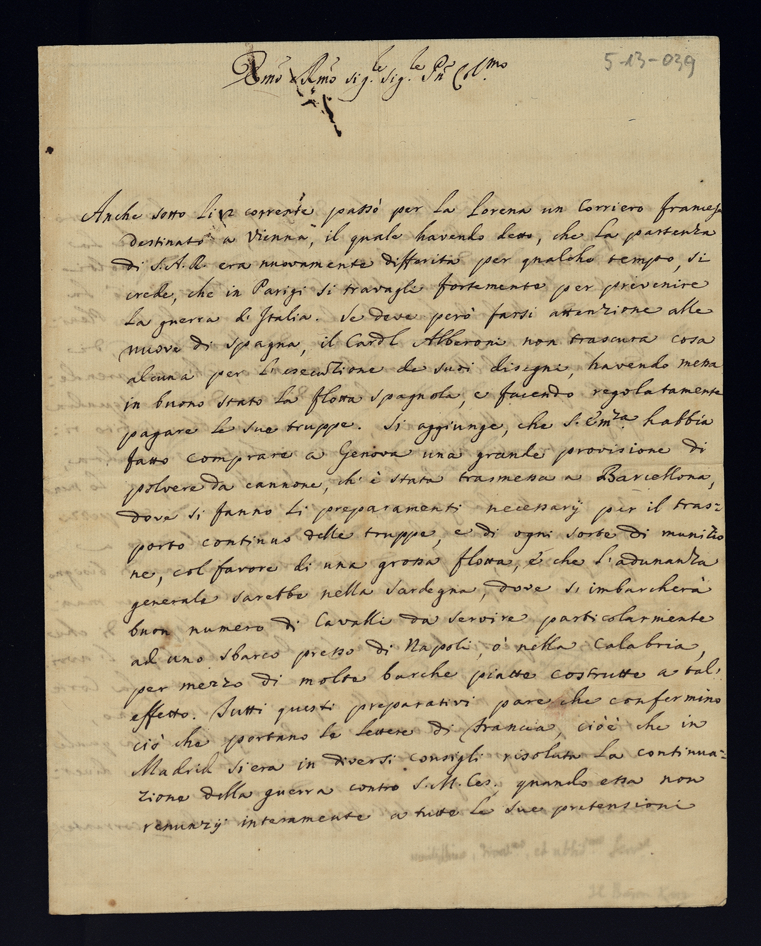 5-13-039
Emo. e Rmo. sig.re sig.re Pn̄ Col.mo
Anche sotto li 12 corrente passò per la Lorena un Corriero francese
destinato a Vienna, il quale havendo detto, che la partenza
di S.A.R. era nuovamente differita per qualche tempo, si
crede, che in Parigi si travagli fortemente per prevenire
la guerra d'Italia. Se deve però farsi attenzione alle
nuove di Spagna, il Cardl Alberoni non trascura cosa
alcuna per l'esecuzione de suoi disegni, havendo messa
in buono stato la flotta spagnola, e facendo regolatamente
pagare le sue truppe. Si aggiunge, che S. Emza. habbia
fatto comprare a Genova una grande provisione di
polvere da cannone, ch' è stata trasmessa a Barcellona,
dove si fanno li preparamenti necessarij per il tras-
porto continuo delle truppe, e di ogni sorte di munizio
ne, col favore di una grossa flotta, e che l'adunanza
generale sarebbe nella Sardegna, dove si imbarcherà
buon numero di Cavalli da servire particolarmente
ad uno sbarco presso di Napoli, ò nella Calabria,
per mezzo di molte barche piatte costrutte a tal'
effetto. Tutti questi preparativi pare che confermino
ciò che portano le lettere di Francia, cioè che in
Madrid si era in diversi consigli risoluta la continua-
zione della guerra contro S.M.Ces. quando essa non
renunzij interamente a tutte le sue pretensioni